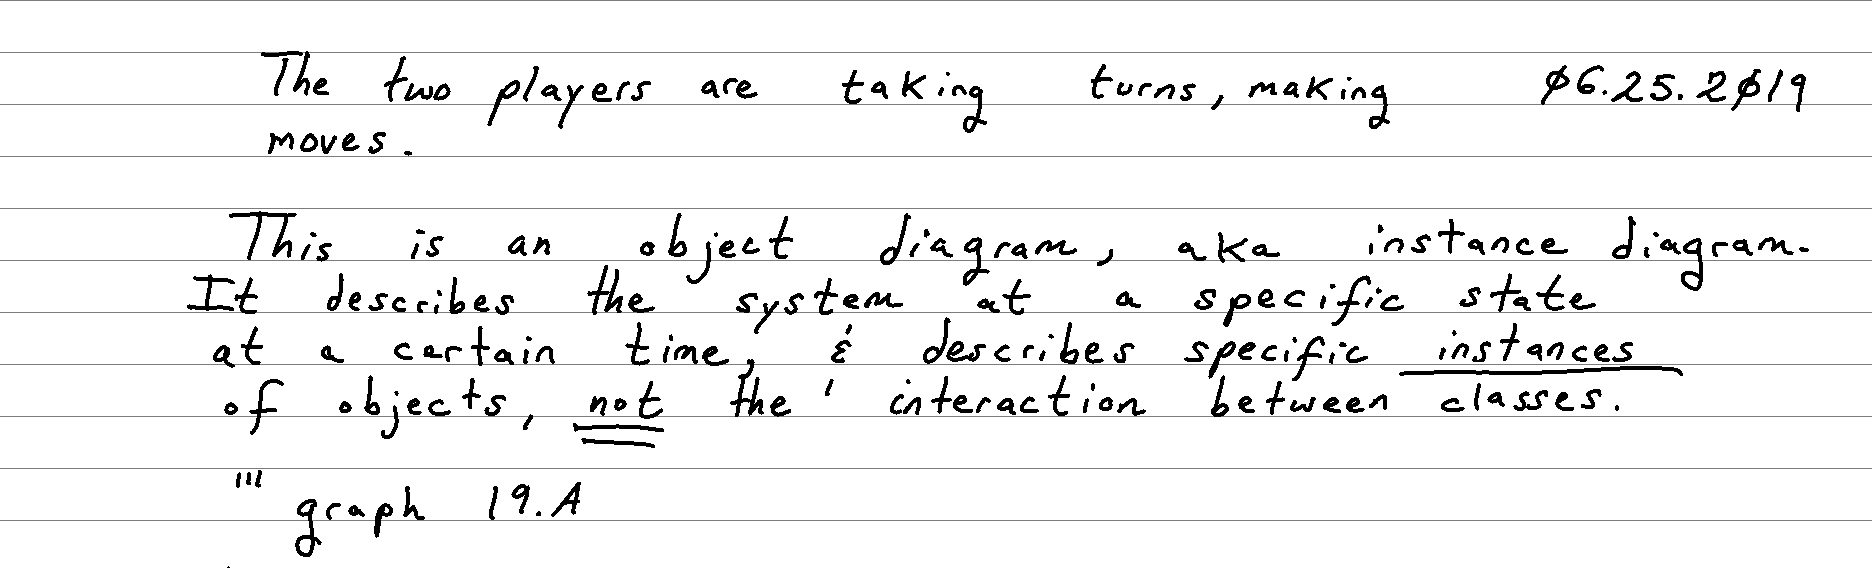 The two players are taking turns, making 06.25.2019
moves.
This is an object diagram, aka instance diagram.
It describes the system at a specific state
at a certain time, & describes specific instances
of objects, not the ' interaction between classes.
''' graph 19.A